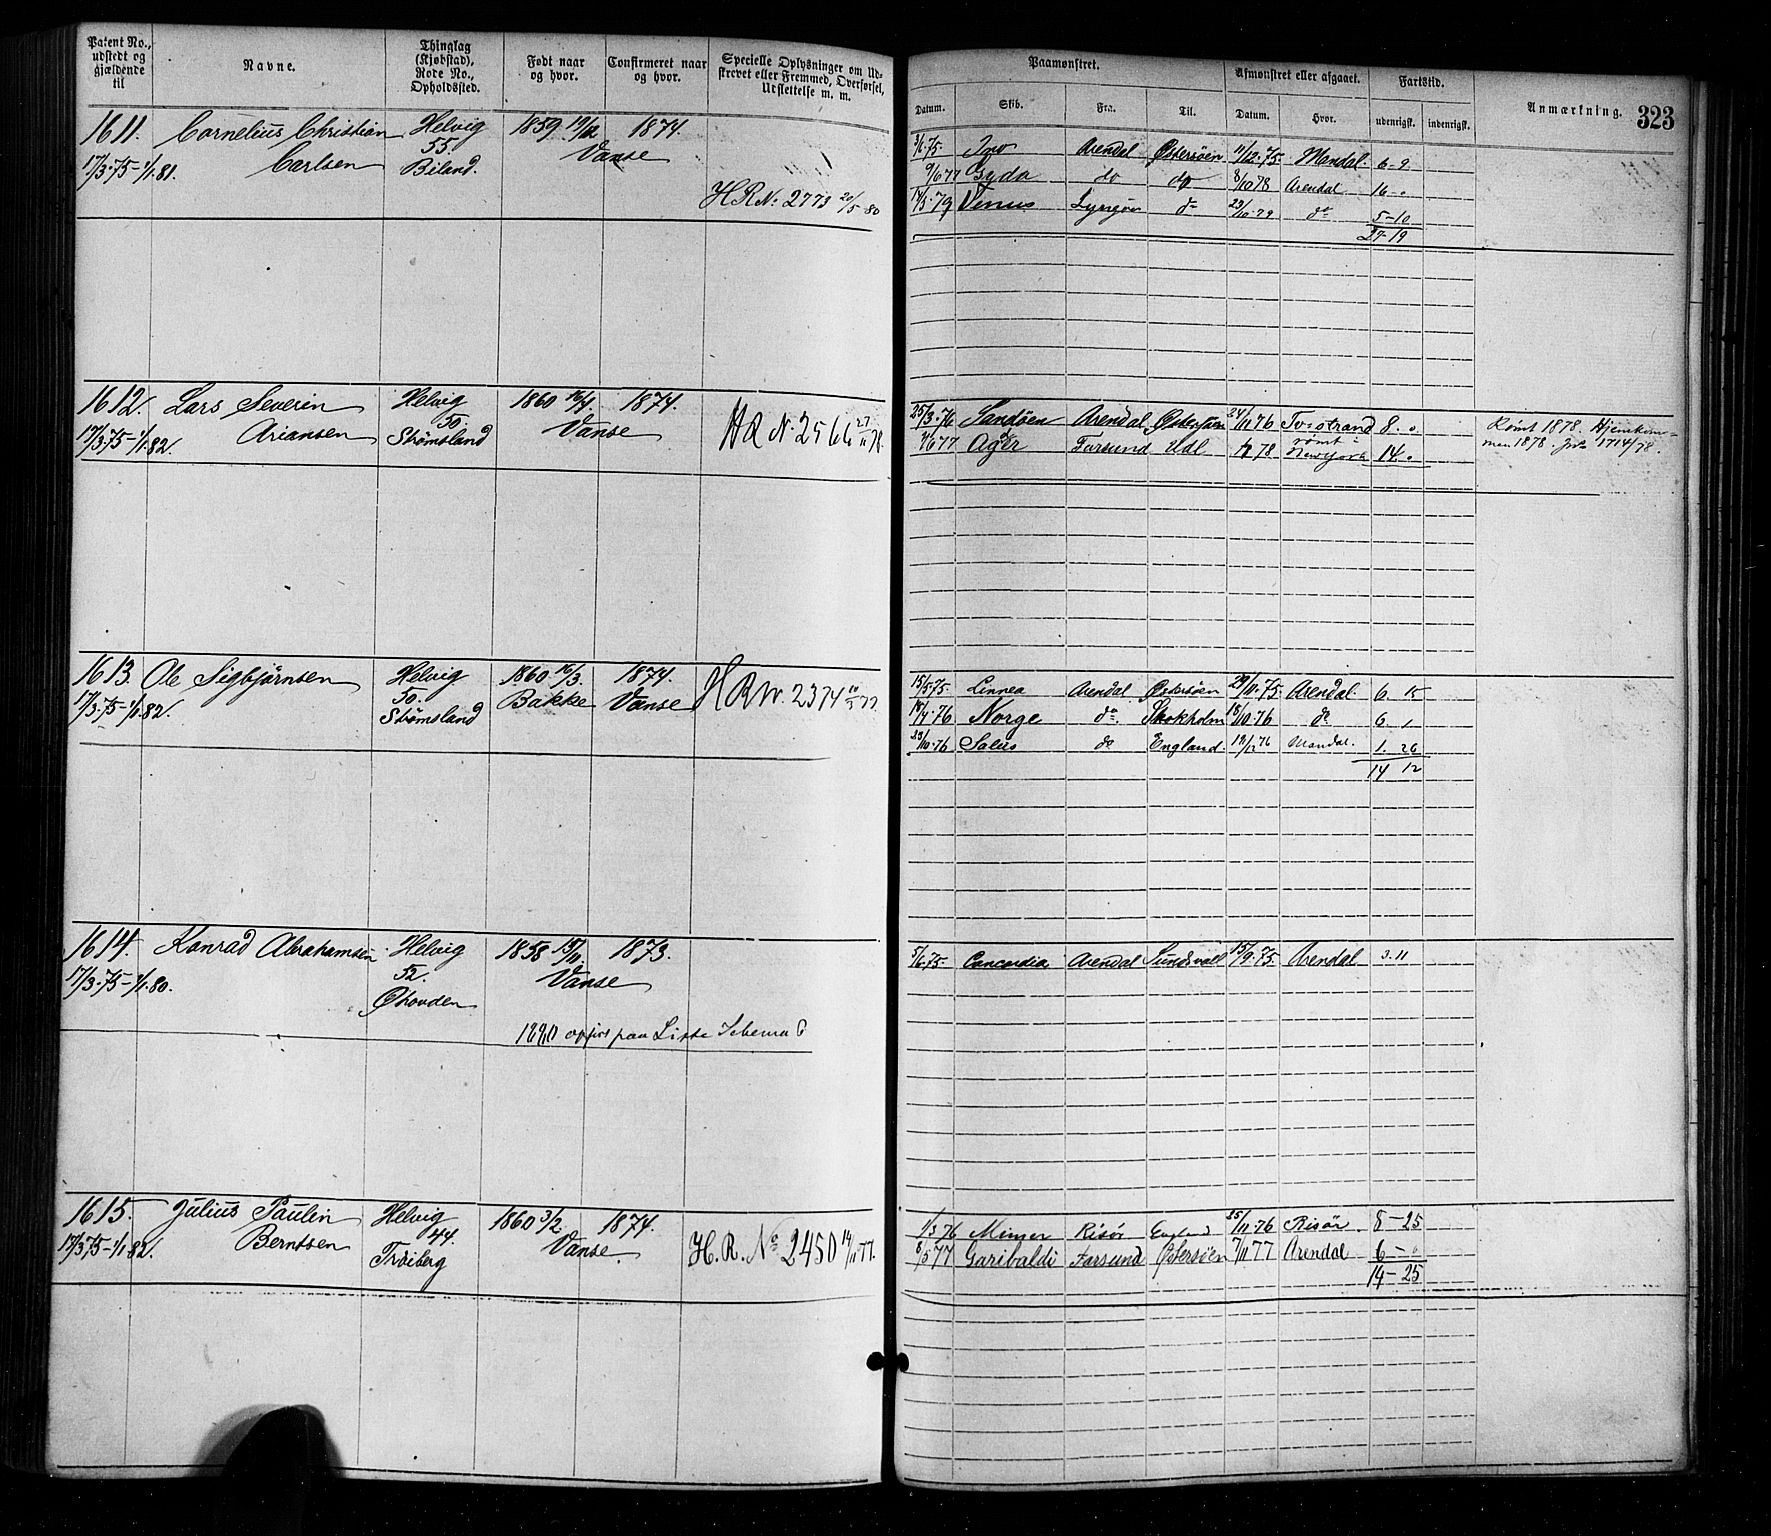 Patent No., udstedt og gjældende til
Navne.
Thinglag (Kjøbstad), Rode No., Opholdssted.
Født naar og hvor.
Confirmeret naar og hvor.
Specielle Oplysninger om Udskrevet eller Fremmed, Overførsel, Udslettelse m. m.
Paamønstret.
Afmønstret eller afgaaet.
Fartstid.
Anmærkning.
323
Datum.
Skib.
Fra.
Til.
Datum.
Hvor.
udenrigsk.
indenrigsk.
1611. Cornelius Christian Helvig 1859 19/12 1874.
17/3.75-1/1.81. Carlsen 55 Biland. Vanse
H R No. 2773 20/5-80
3/6.75. Arendal Østersøen 11/12.75. Mandal 6-9
9/6 77 Gyda do do 8/10 78 Arendal 16 -
17/3.79 Venus Lyngøer do 23/10.79 do 5-10
27-19
1612. Lars Severin Helvig 1860 16/4 1874.
17/3.75-1/1.82. Ariansen 50. Strømsland Vanse
H R N. 2566 27/11 78.
25/3.76 Sandøen Arendal 24/11 76 8. 0
7/6 77 Ager Farsund Udl 78 rømt i Newyork 14.
Rømt 1878. Hjemkommen 1878. Jr. 1714/78.
1613. Ole Sigbjørnsen Helvig 1860 16/3. 1874.
17/3.75-1/1.82. 50. Strømsland Bakke Vanse
H R N. 2374
15/5.75. Linnea Arendal Østersøen 29/11.75. Arendal 6. 15
18/4.76 Norge do Stokholm 18/10.76 do 6. 1
23/10.76 Salus do England. 19/12 76 Mandal. 1. 26
14 12
1614. Konrad Abrahamsen Helvig 1858 15/11. 1873.
17/3.75-1/1.80. 52. Ohovden Vanse
1880 opført paa Liste Schema 6
5/6.75. Concordia Arendal Sundsvall 15/9.75. Arendal 3.11
1615. Julius Paulin Helvig 1860 3/2. 1874.
17/3 75-1/1.82. Berntsen 44. Trøiberg Vanse.
H. R. No 2450 14/11 77.
1/3 76 Mimer Risør England 25/11.76 Risør. 8-25
8/5 77 Garibaldi Farsund Østersøen 7/11 77 Arendal 6-0
14-25